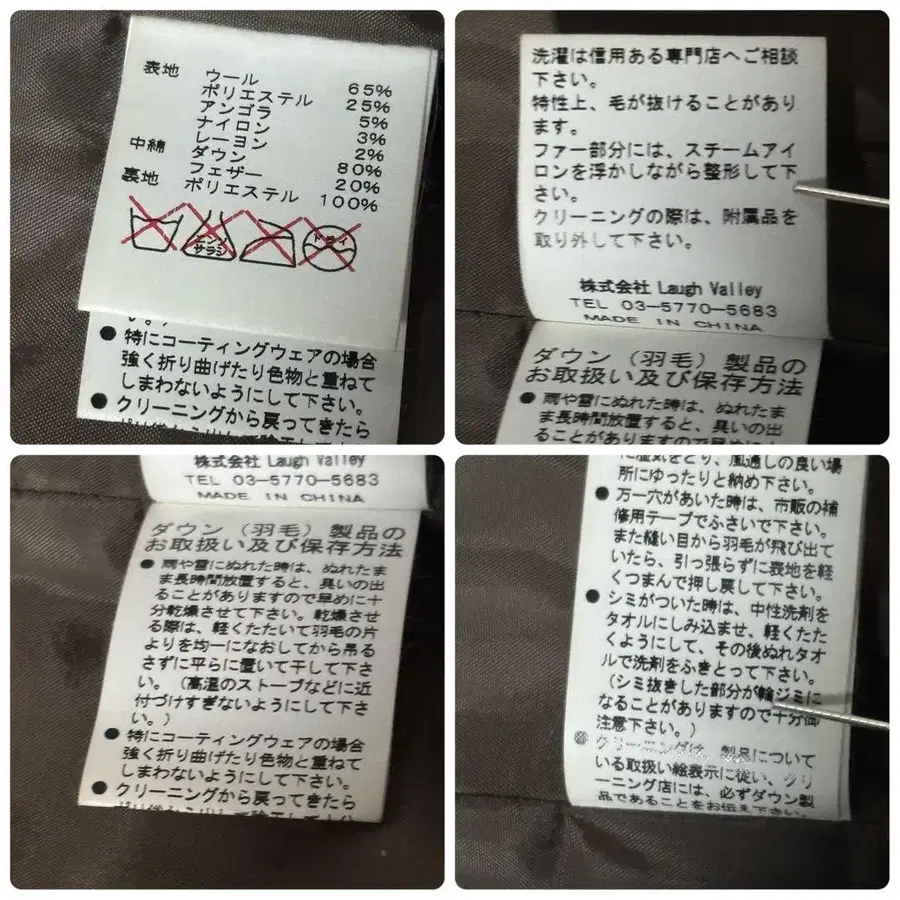 表地 ウール 65%
ポリエステル 25%
アンゴラ 5%
ナイロン 3%
レーヨン 2%
中綿 ダウン 80%
フェザー 20%
裏地 ポリエステル 100%
エンソ
サラシ
ドライ
い。)
● 特にコーティングウェアの場合
強く折り曲げたり色物と重ねて
しまわないようにして下さい。
● クリーニングから戻ってきたら
洗濯は信用ある専門店へご相談
下さい。
特性上、毛が抜けることがあり
ます。
ファー部分には、スチームアイ
ロンを浮かしながら整形して下
さい。
クリーニングの際は、附属品を
取り外して下さい。
株式会社 Laugh Valley
TEL 03-5770-5683
MADE IN CHINA
ダウン（羽毛）製品の
お取扱い及び保存方法
● 雨や雪にぬれた時は、ぬれたま
ま長時間放置すると、臭いの出
ることがありますので早めに十
株式会社 Laugh Valley
TEL 03-5770-5683
MADE IN CHINA
ダウン（羽毛）製品の
お取扱い及び保存方法
● 雨や雪にぬれた時は、ぬれたま
ま長時間放置すると、臭いの出
ることがありますので早めに十
分乾燥させて下さい。乾燥させ
る際は、軽くたたいて羽毛の片
よりを均一になおしてから吊る
さずに平らに置いて干して下さ
い。（高温のストーブなどに近
付づけすぎないようにして下さ
い。)
● 特にコーティングウェアの場合
強く折り曲げたり色物と重ねて
しまわないようにして下さい。
● クリーニングから戻ってきたら
に湿気をとり、風通しの良い場
所にゆったりと納め下さい。
● 万一穴があいた時は、市販の補
修用テープでふさいで下さい。
また縫い目から羽毛が飛び出て
いたら、引っ張らずに表地を軽
くつまんで押し戻して下さい。
● シミがついた時は、中性洗剤を
タオルにしみ込ませ、軽くたた
くようにして、その後ぬれタオ
ルで洗剤をふきとって下さい。
（シミ抜きした部分が輪ジミに
なることがありますので十分御
注意下さい。）
● クリーニングは、製品について
いる取扱い絵表示に従い、クリ
ーニング店には、必ずダウン製
品であることをお伝え下さい。